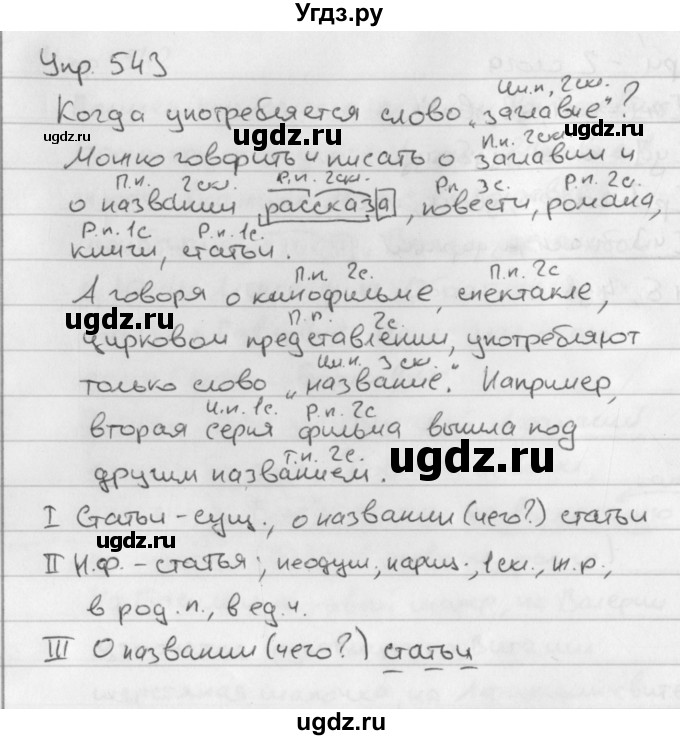 Угдз.ру
Упр. 543
Им.п., 2скл.
Когда употребляется слово „заглавие"?
ugdz.ru ugdz.ru
П.п. 2скл.
Можно говорить и писать о заглавии и
П.п. 2скл. Р.п. 2скл. Р.п. 3с. Р.п. 2с.
о названии рассказа, повести, романа,
Р.п. 1с Р.п. 1с. ugdz.ru
книги, статьи.
П.п. 2с. П.п. 2с
А говоря о кинофильме, спектакле,
ugdz.ru П.п. 2с. ugdz.ru
цирковом представлении, употребляют
Им.п. 3скл.
только слово „название". Например,
И.п. 1с. Р.п. 2с
вторая серия фильма вышла под
Т.п. 2с. ugdz.ru
другим названием.
I Статьи – сущ., о названии (чего?) статьи
ugdz.ru
II Н.ф. – статья, неодуш., нариц., 1скл., ж.р.,
в род.п., в ед.ч. ugdz.ru
III О названии (чего?) статьи
ugdz.ru